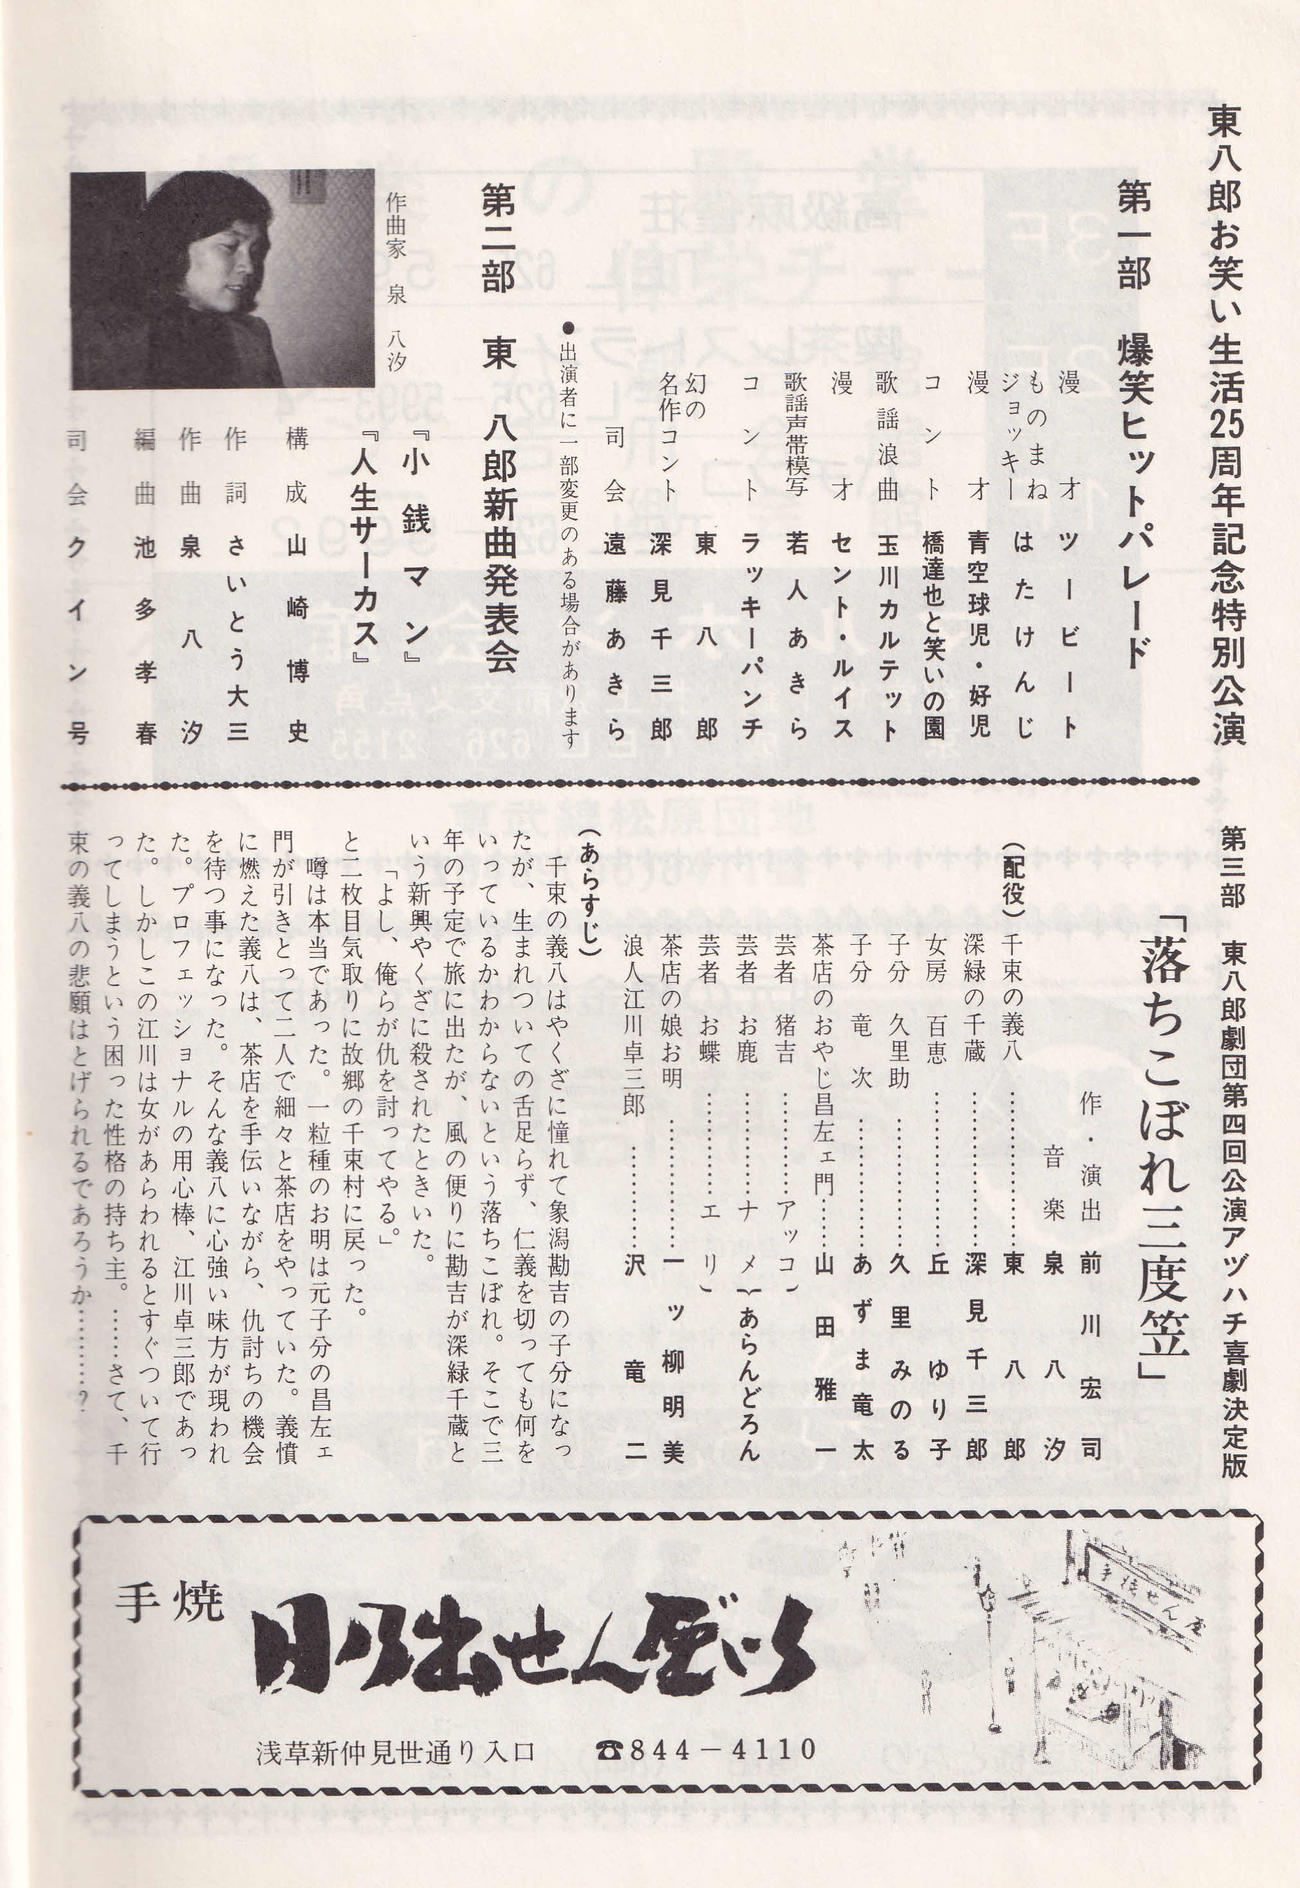 東八郎お笑い生活25周年記念特別公演
第一部 爆笑ヒットパレード
漫才 ツービート
ものまねジョッキー はたけんじ
漫才 青空球児・好児
コント 橋達也と笑いの園
歌謡浪曲 玉川カルテット
漫才 セント・ルイス
歌謡声帯模写 若人あきら
コント ラッキーパンチ
幻の名作コント 東八郎
深見千三郎
司会 遠藤あきら
●出演者に一部変更のある場合があります
第二部 東 八郎新曲発表会
『小銭マン』
『人生サーカス』
作曲家 泉 八汐
構成 山崎博史
作詞 さいとう大三
作曲 泉八汐
編曲 池多孝春
司会 クイン号
第三部 東八郎劇団第四回公演アヅハチ喜劇決定版
「落ちこぼれ三度笠」
作・演出 前川宏司
音楽 泉八汐
(配役)
千束の義八…………… 東八郎
深緑の千蔵…………… 深見千三郎
女房 百恵…………… 丘ゆり子
子分 久里助………… 久里みのる
子分 竜次………… あずま竜太
茶店のおやじ昌左ェ門…… 山田雅一
芸者 猪吉………アッコ
芸者 お鹿………ナメ
芸者 お蝶………エリ
あらんどろん
茶店の娘お明………… 一ツ柳明美
浪人江川卓三郎……… 沢竜二
(あらすじ)
千束の義八はやくざに憧れて象潟勘吉の子分になっ
たが、生まれついての舌足らず、仁義を切っても何を
いっているかわからないという落ちこぼれ。そこで三
年の予定で旅に出たが、風の便りに勘吉が深緑千蔵と
いう新興やくざに殺されたときいた。
「よし、俺らが仇を討ってやる。」
と二枚目気取りに故郷の千束村に戻った。
噂は本当であった。一粒種のお明は元子分の昌左ェ
門が引きとって二人で細々と茶店をやっていた。義憤
に燃えた義八は、茶店を手伝いながら、仇討ちの機会
を待つ事になった。そんな義八に心強い味方が現われ
た。プロフェッショナルの用心棒、江川卓三郎であっ
た。しかしこの江川は女があらわれるとすぐついて行
ってしまうという困った性格の持ち主。……さて、千
束の義八の悲願はとげられるであろうか…………?
手焼
日乃出せんべい
浅草新仲見世通り入口 ☎844-4110